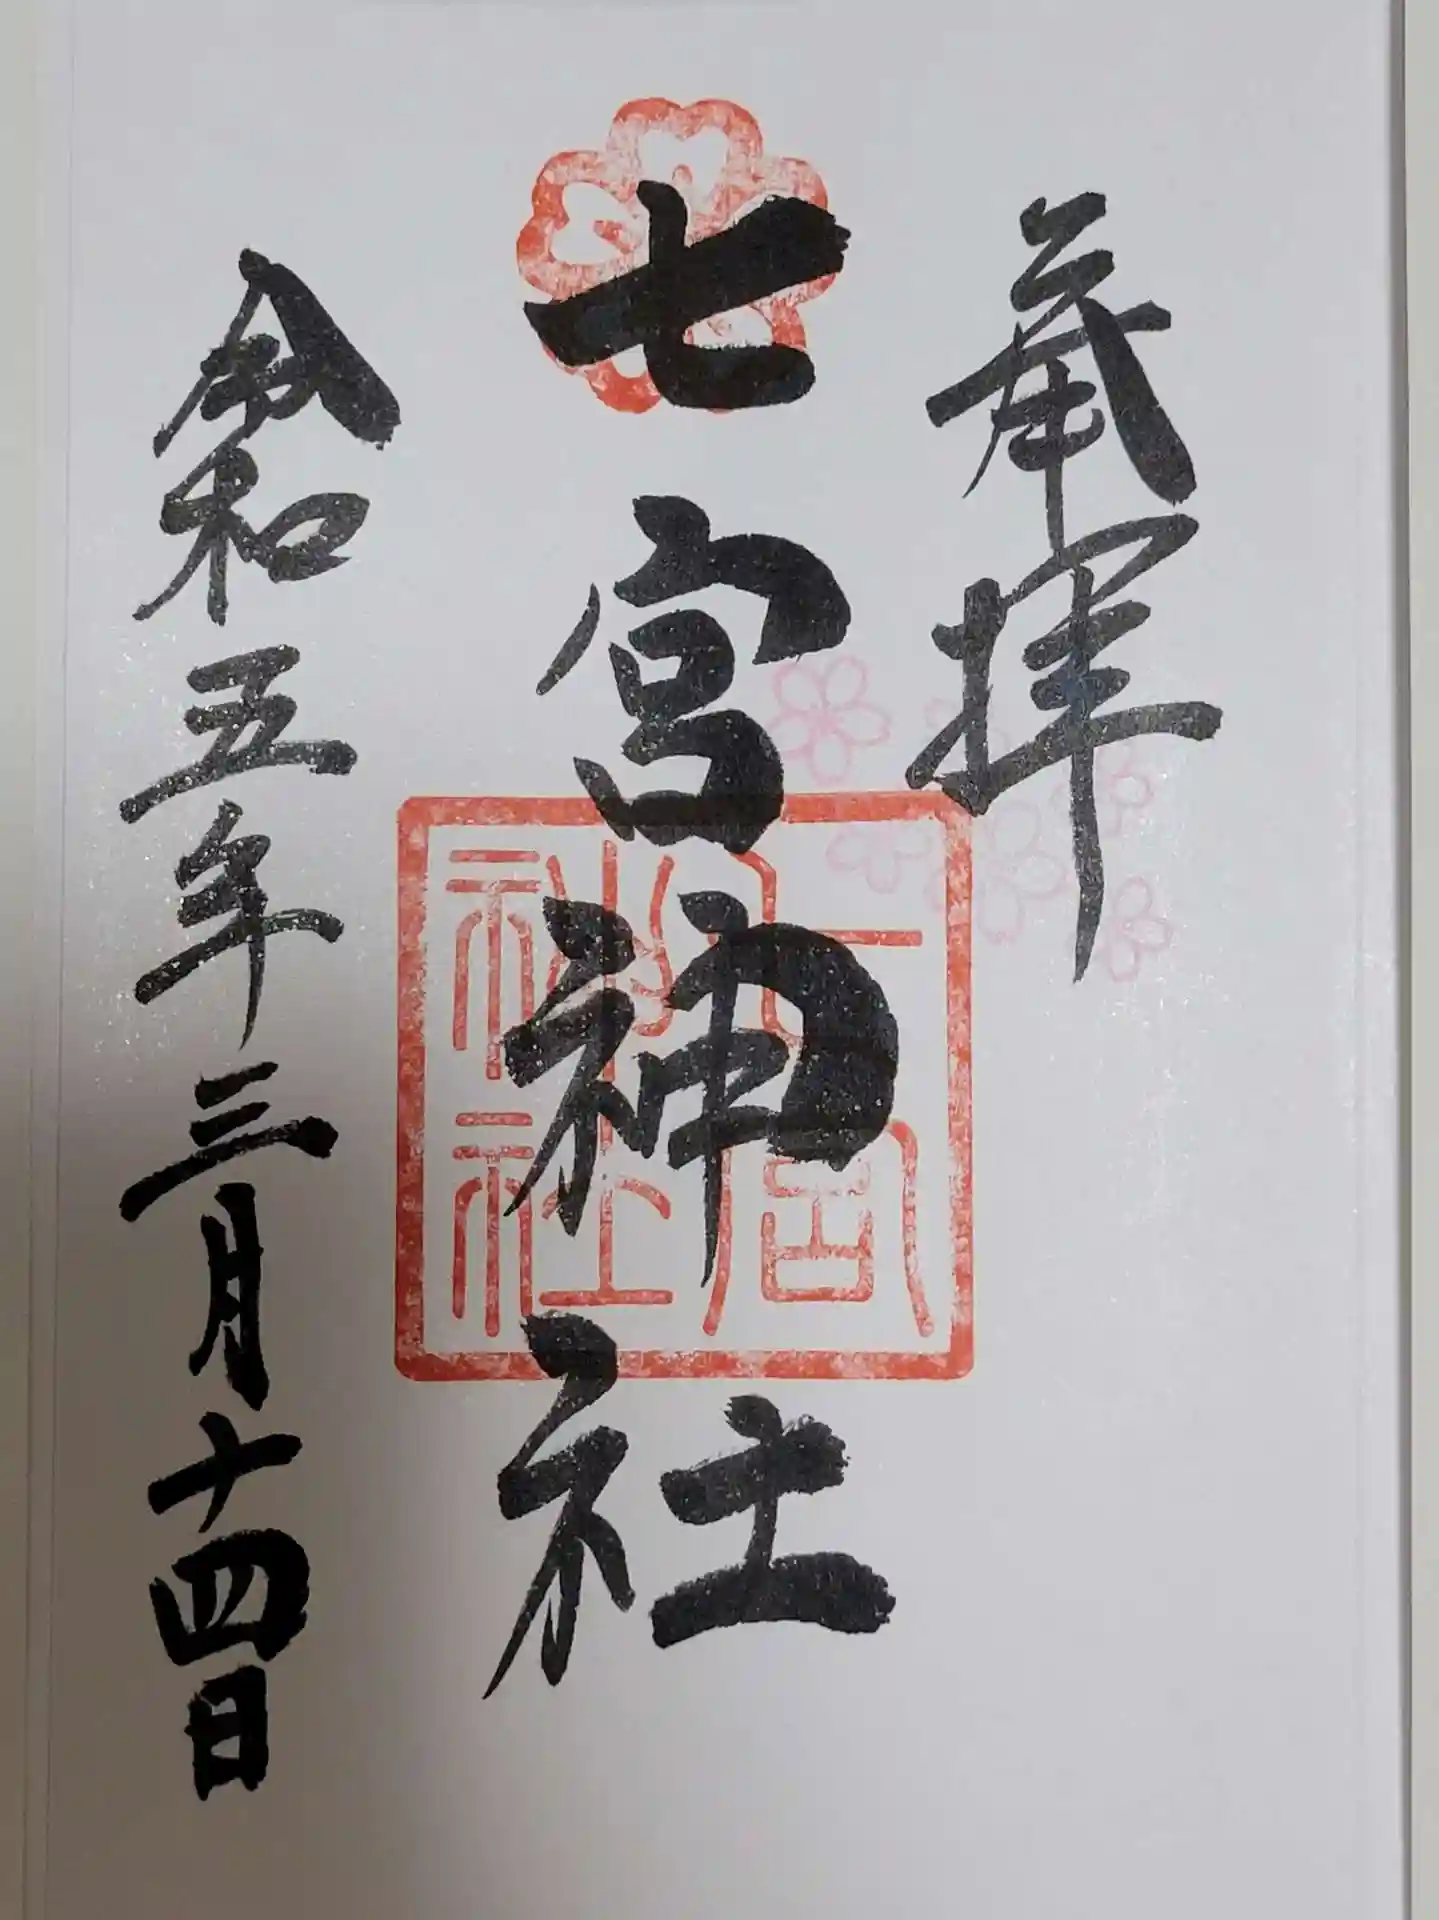 奉拝
七宮神社
七宮神社
令和五年三月十四日